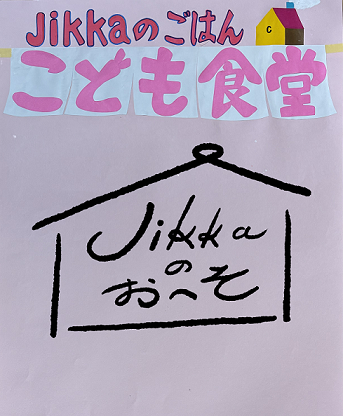 Jikkaのごはん
C
こども食堂
Jikka
の
おへそ